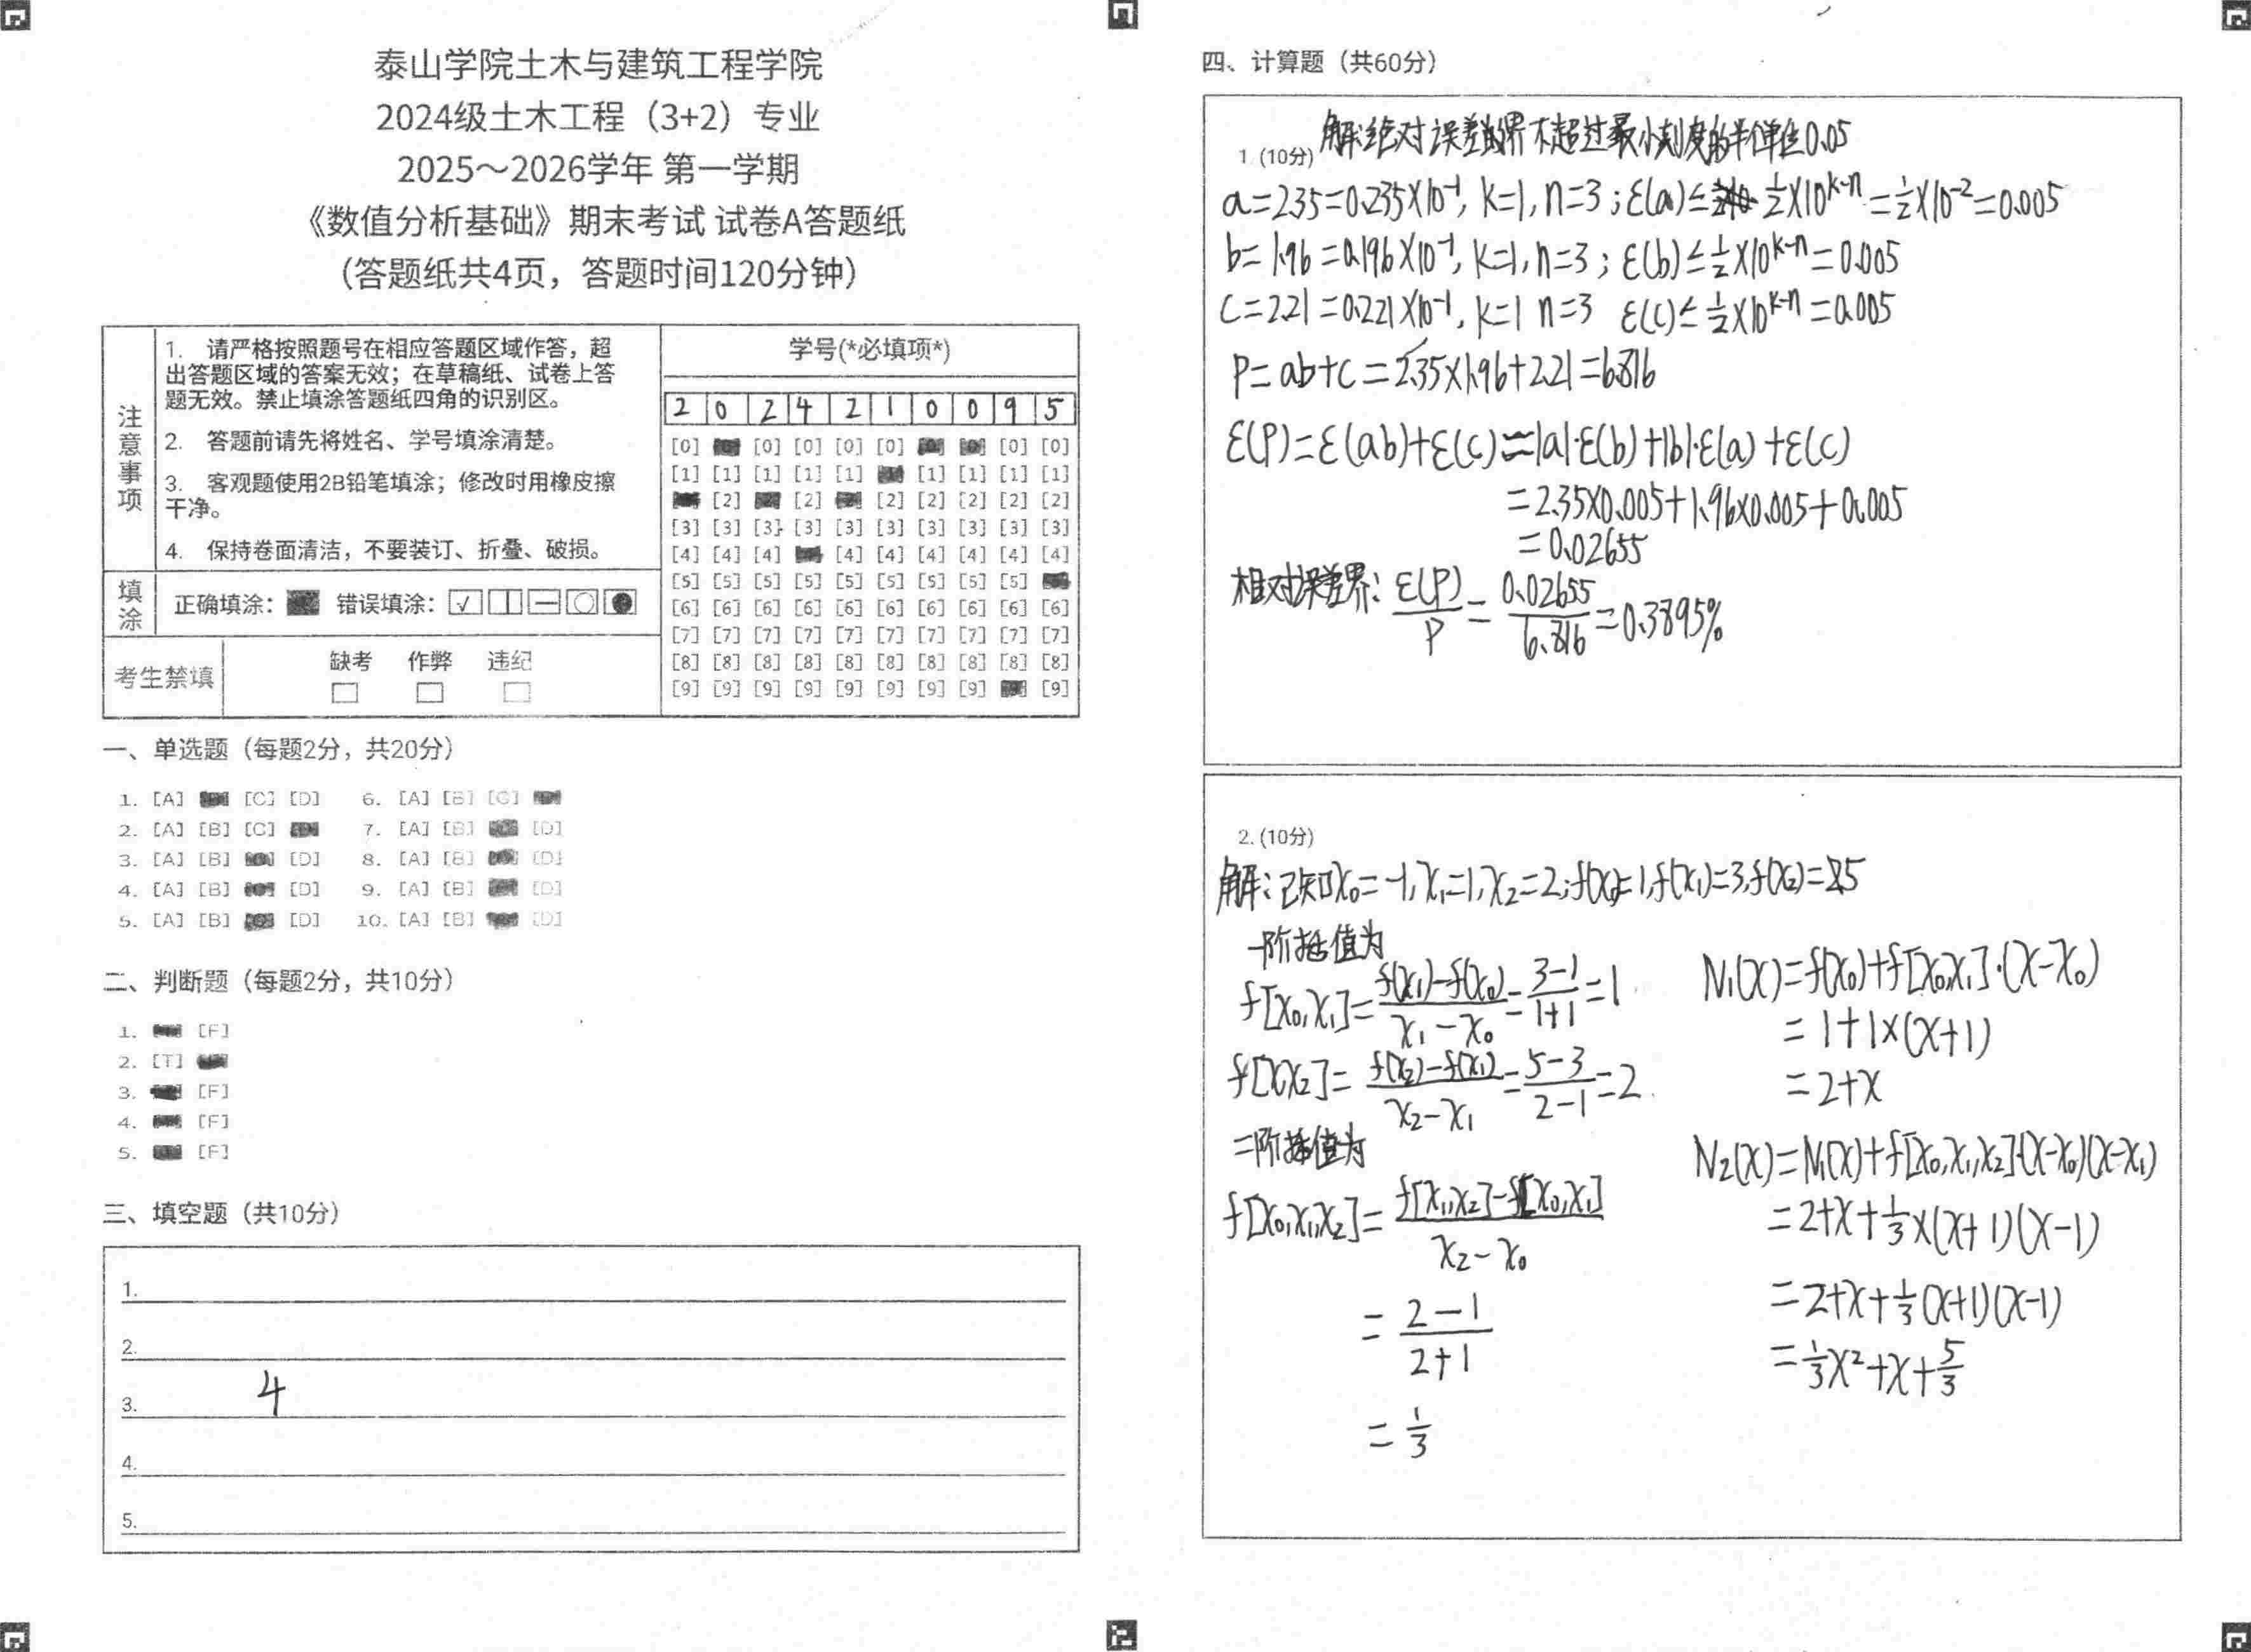 泰山学院土木与建筑工程学院
2024级土木工程（3+2）专业
2025～2026学年 第一学期
《数值分析基础》期末考试 试卷A答题纸
（答题纸共4页，答题时间120分钟）
注意事项
1. 请严格按照题号在相应答题区域作答，超
出答题区域的答案无效；在草稿纸、试卷上答
题无效。禁止填涂答题纸四角的识别区。
2. 答题前请先将姓名、学号填涂清楚。
3. 客观题使用2B铅笔填涂；修改时用橡皮擦
干净。
4. 保持卷面清洁，不要装订、折叠、破损。
填涂
正确填涂： 错误填涂：
考生禁填
缺考 作弊 违纪
学号(*必填项*)
2 0 2 4 2 1 0 0 9 5
[0] [0] [0] [0] [0] [0] [0]
[1] [1] [1] [1] [1] [1] [1] [1] [1]
[2] [2] [2] [2] [2] [2] [2]
[3] [3] [3] [3] [3] [3] [3] [3] [3] [3]
[4] [4] [4] [4] [4] [4] [4] [4] [4]
[5] [5] [5] [5] [5] [5] [5] [5] [5]
[6] [6] [6] [6] [6] [6] [6] [6] [6] [6]
[7] [7] [7] [7] [7] [7] [7] [7] [7] [7]
[8] [8] [8] [8] [8] [8] [8] [8] [8] [8]
[9] [9] [9] [9] [9] [9] [9] [9] [9]
一、单选题（每题2分，共20分）
1. [A] [C] [D] 6. [A] [B] [C]
2. [A] [B] [C] 7. [A] [B] [D]
3. [A] [B] [D] 8. [A] [B] [D]
4. [A] [B] [D] 9. [A] [B] [D]
5. [A] [B] [D] 10. [A] [B] [D]
二、判断题（每题2分，共10分）
1. [F]
2. [T]
3. [F]
4. [F]
5. [F]
三、填空题（共10分）
1.
2.
3. 4
4.
5.
四、计算题（共60分）
1. (10分) 解:绝对误差的界不超过最小刻度的半个单位0.05
a=2.35=0.235×10⁻¹, k=1, n=3; ε(a)≤ ½×10^{k-n}=½×10⁻²=0.005
b=1.96=0.196×10⁻¹, k=1, n=3; ε(b)≤½×10^{k-n}=0.005
c=2.21=0.221×10⁻¹, k=1 n=3 ε(c)≤½×10^{k-n}=0.005
P=ab+c=2.35×1.96+2.21=6.816
ε(P)=ε(ab)+ε(c)≈|a|·ε(b)+|b|·ε(a)+ε(c)
=2.35×0.005+1.96×0.005+0.005
=0.02655
相对误差界: ε(P)/P=0.02655/6.816=0.3895%
2. (10分)
解:已知x₀=-1, x₁=1, x₂=2; f(x₀)=1, f(x₁)=3, f(x₂)=5
一阶插值为
f[x₀,x₁]=(f(x₁)-f(x₀))/(x₁-x₀)=(3-1)/(1+1)=1
f[x₁x₂]=(f(x₂)-f(x₁))/(x₂-x₁)=(5-3)/(2-1)=2
二阶插值为
f[x₀,x₁,x₂]=(f[x₁,x₂]-f[x₀,x₁])/(x₂-x₀)
=(2-1)/(2+1)
=1/3
N₁(x)=f(x₀)+f[x₀,x₁]·(x-x₀)
=1+1×(x+1)
=2+x
N₂(x)=N₁(x)+f[x₀,x₁,x₂]·(x-x₀)(x-x₁)
=2+x+⅓×(x+1)(x-1)
=2+x+⅓(x+1)(x-1)
=⅓x²+x+5/3